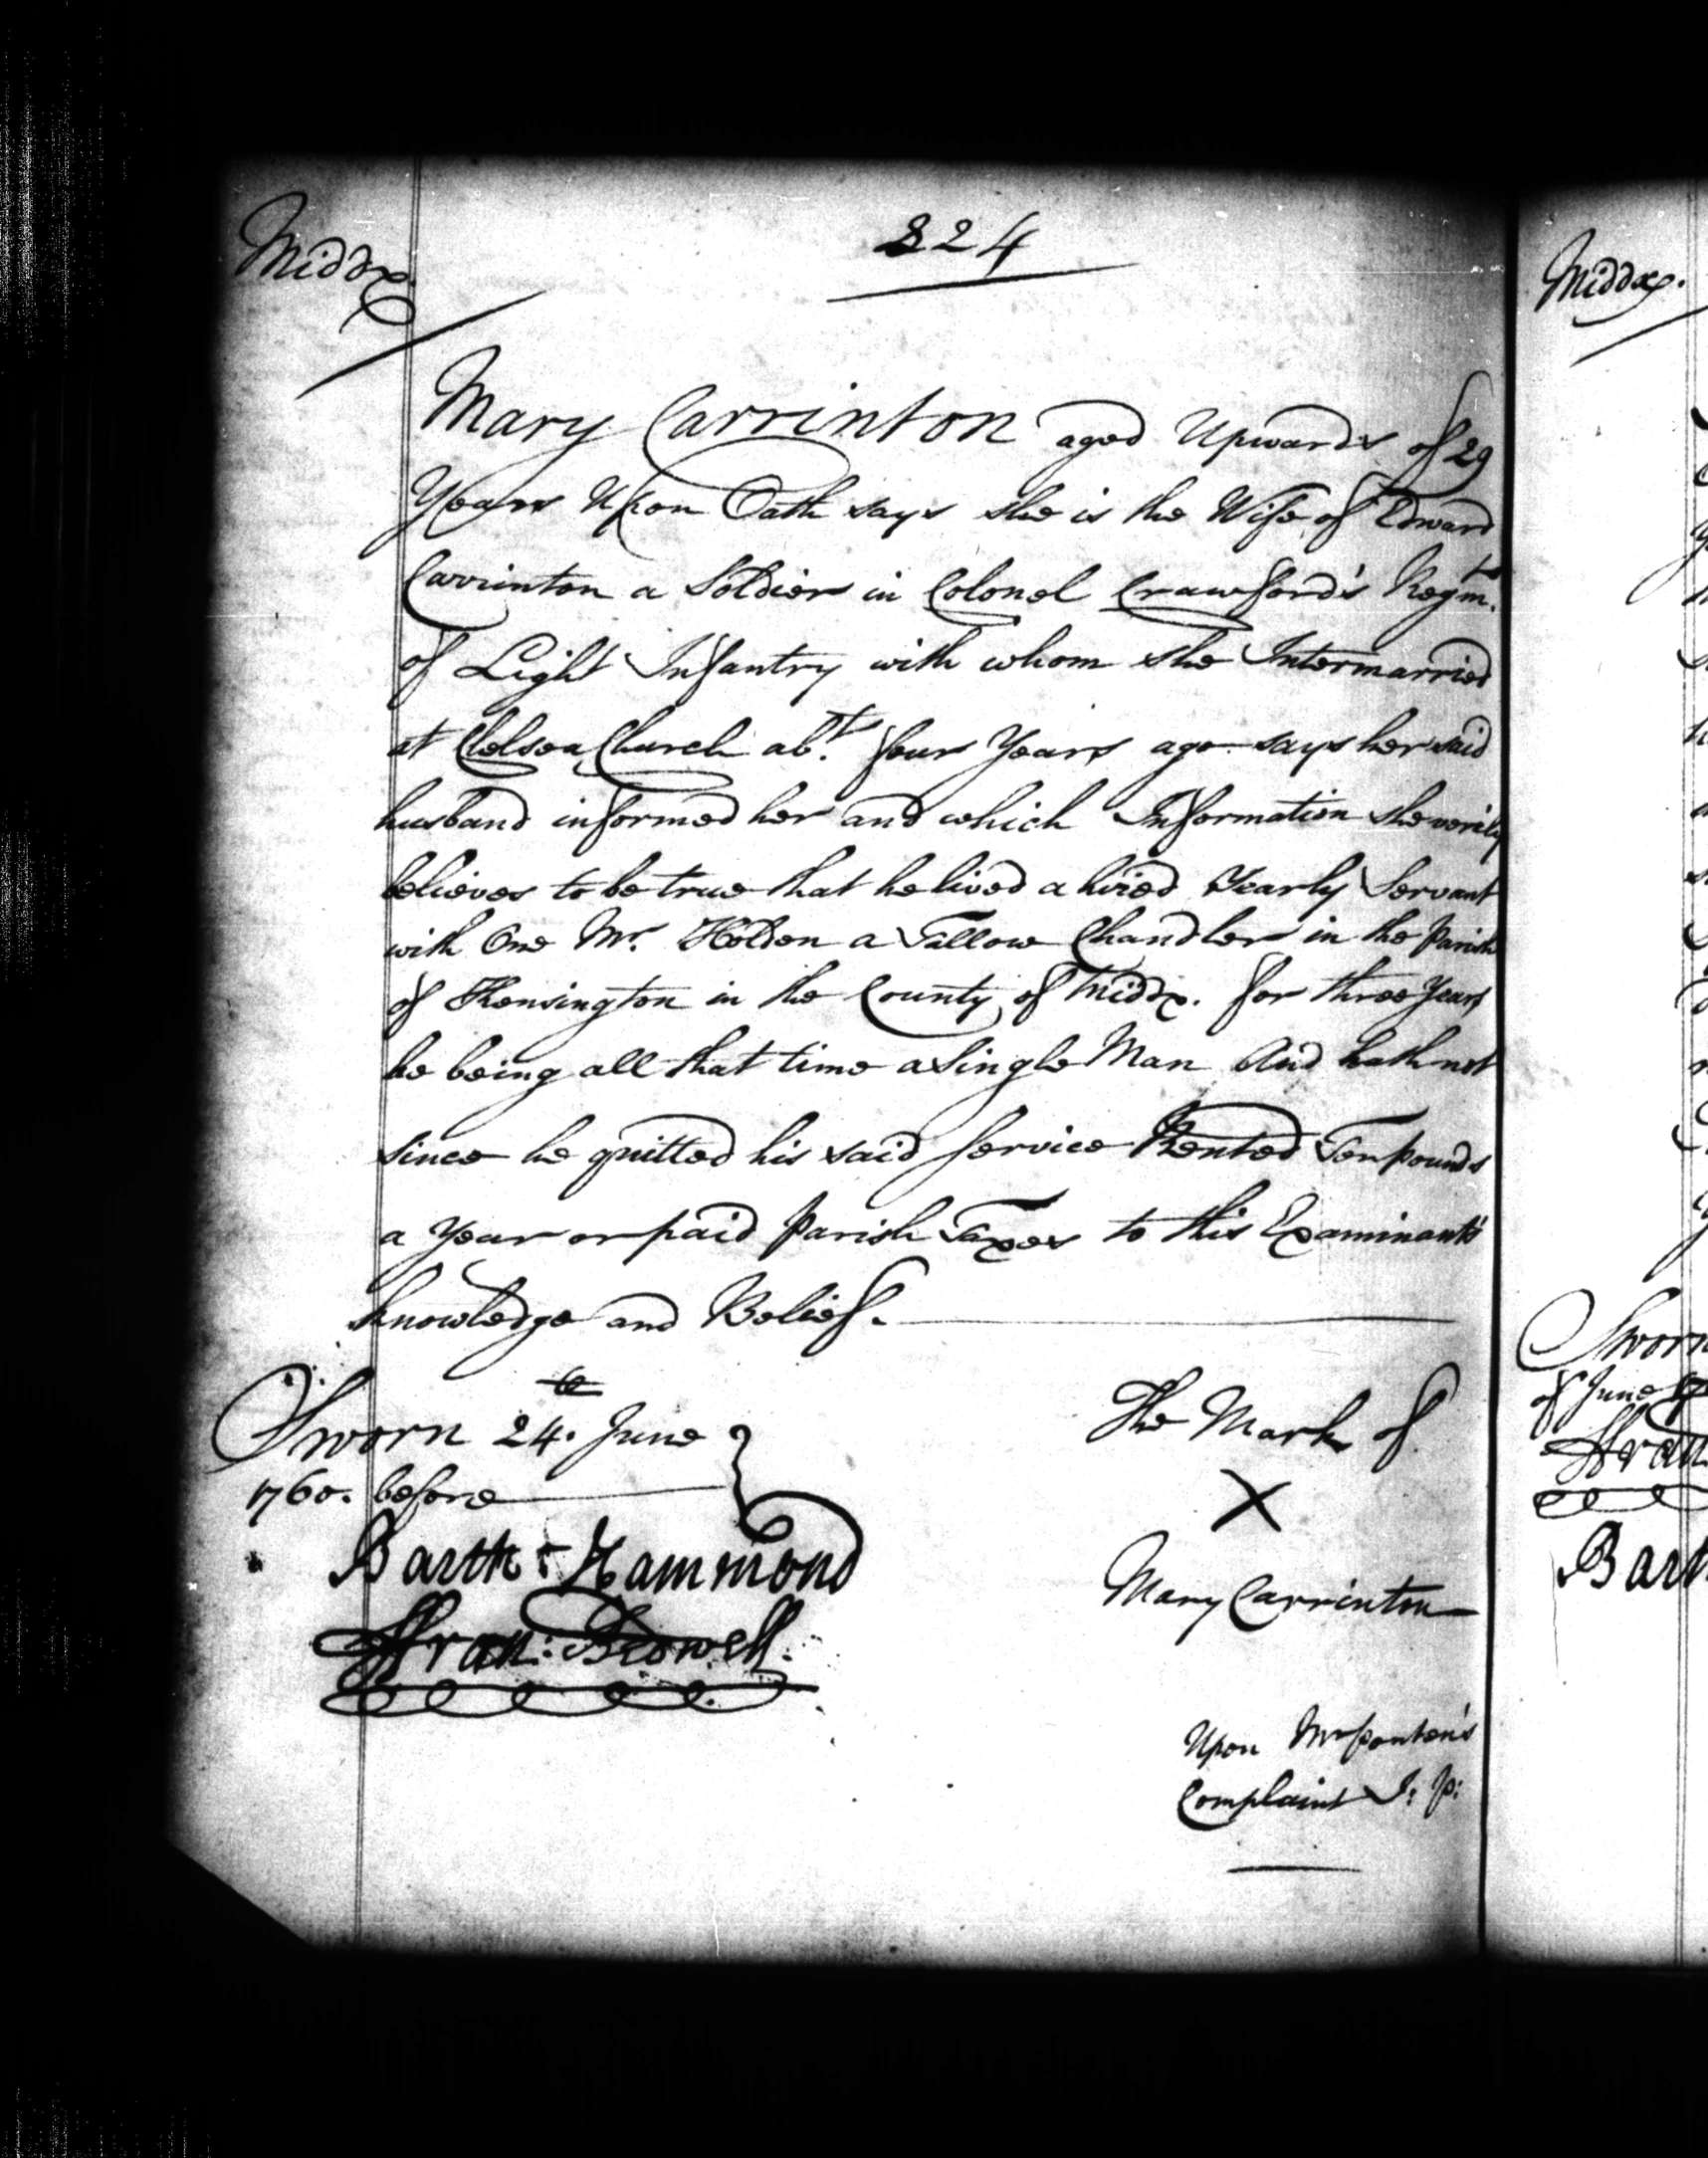 Middx
224
Mary Carrinton aged Upwards of 29
Years Upon Oath says she is the Wife of Edward
Carrinton a Soldier in Colonel Crawford's Regmt.
of Light Infantry with whom she Intermarried
at Chelsea Church abt. four Years ago says her said
husband informed her and which Information she verily
believes to be true that he lived a hired Yearly Servant
with One Mr. Holden a Tallow Chandler in the Parish
of Kensington in the County of Middx. for three Years
he being all that time a Single Man And hath not
since he quitted his said Service Rented Ten pounds
a Year or paid Parish Taxes to this Examinants
knowledge and Belief.
Sworn 24th. June
1760. before
Barth Hammond
Fran:
The Mark of
X
Mary Carrinton
Upon Mr Ponton's
Complaint J: P:
Middx.
Sworn
of June
Fran
Barth